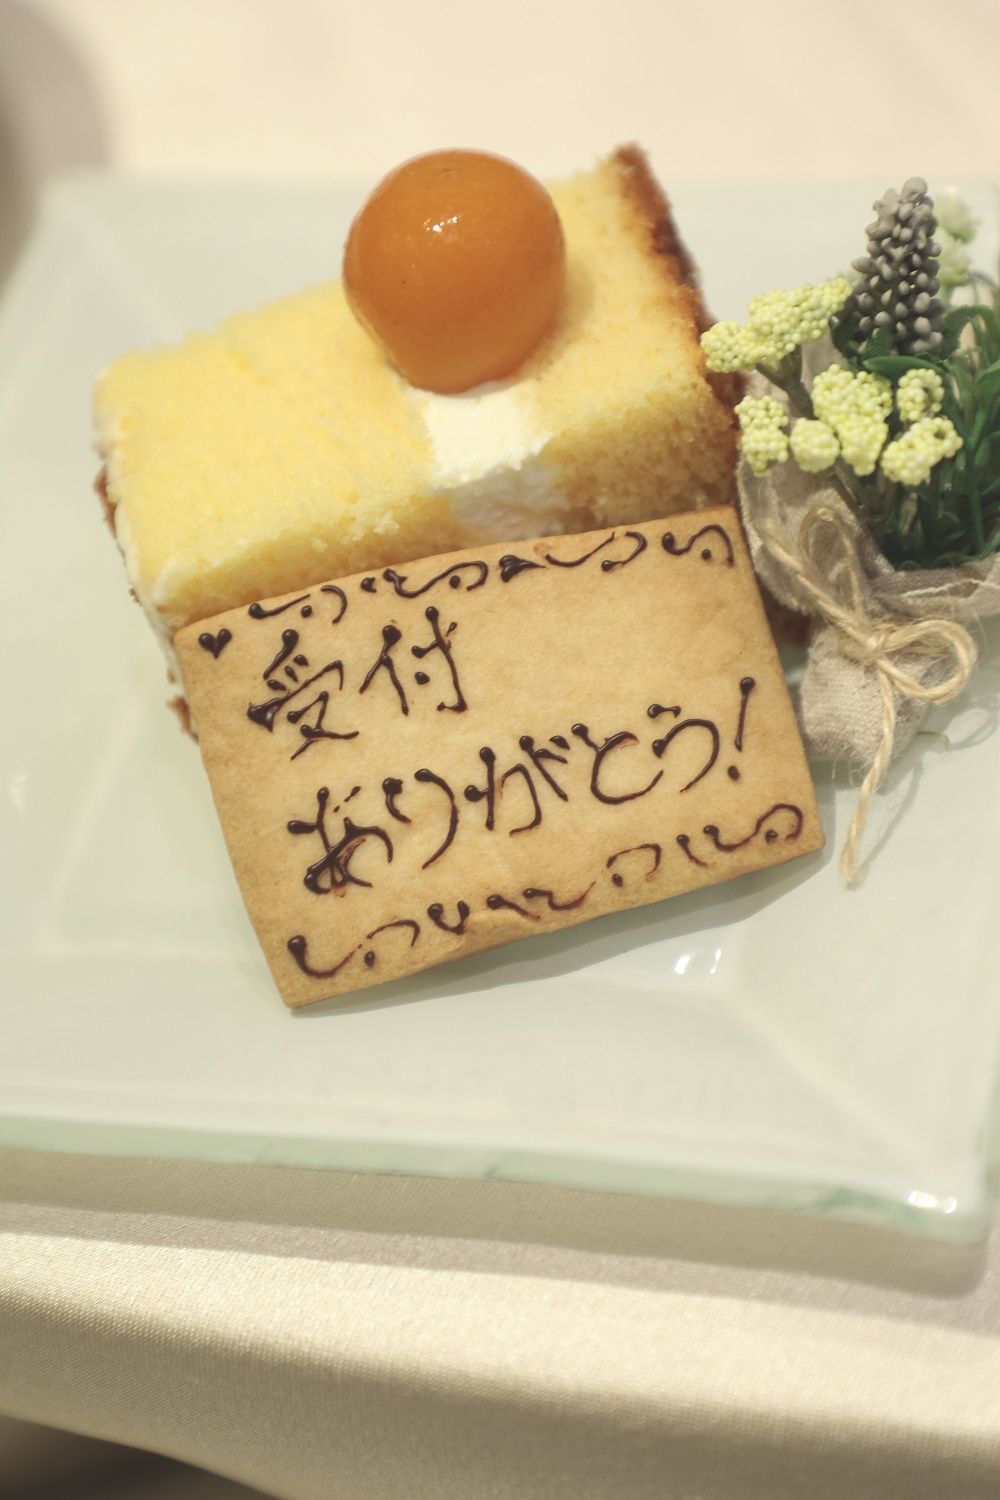 受付
ありがとう!